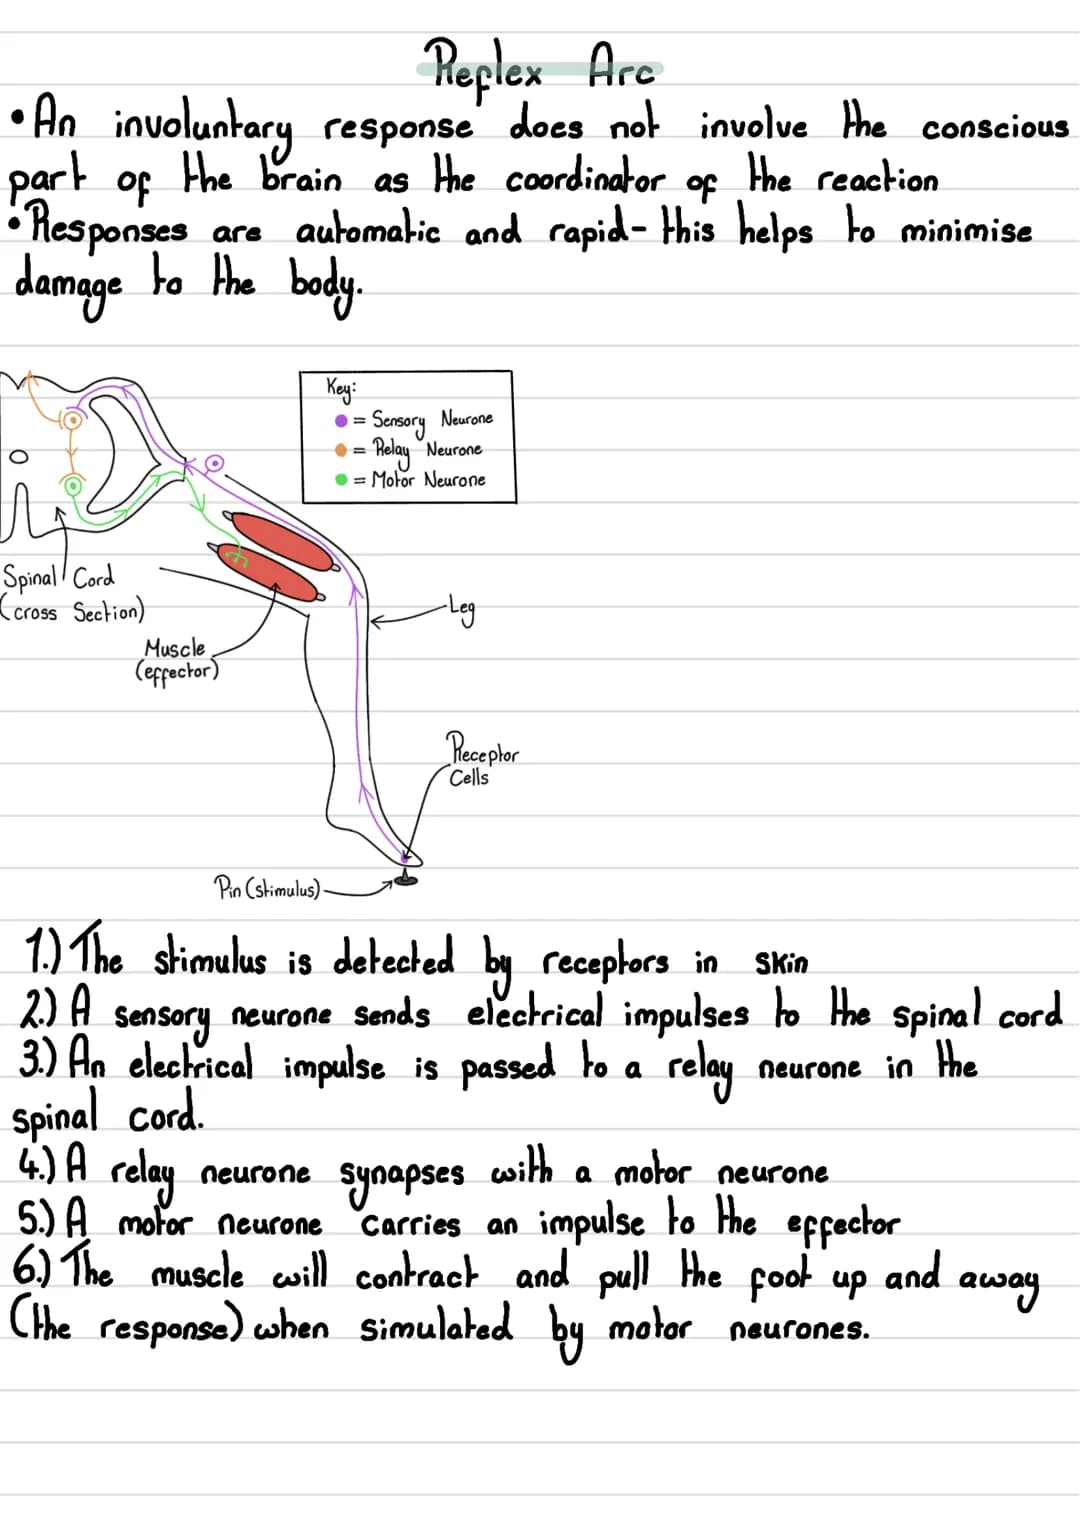 Reflex Arc
•An involuntary response does not involve the conscious
part of the brain as the coordinator of the reaction
•Responses are automatic and rapid- this helps to minimise
damage to the body.
Key:
= Sensory Neurone
= Relay Neurone
= Motor Neurone
Spinal Cord
(cross Section)
Leg
Muscle
(effector)
Receptor
Cells
Pin (stimulus)
1.) The stimulus is detected by receptors in skin
2.) A sensory neurone sends electrical impulses to the spinal cord
3.) An electrical impulse is passed to a relay neurone in the
spinal cord.
4.) A relay neurone synapses with a motor neurone
5.) A motor neurone carries an impulse to the effector
6.) The muscle will contract and pull the foot up and away
(the response) when simulated by motor neurones.